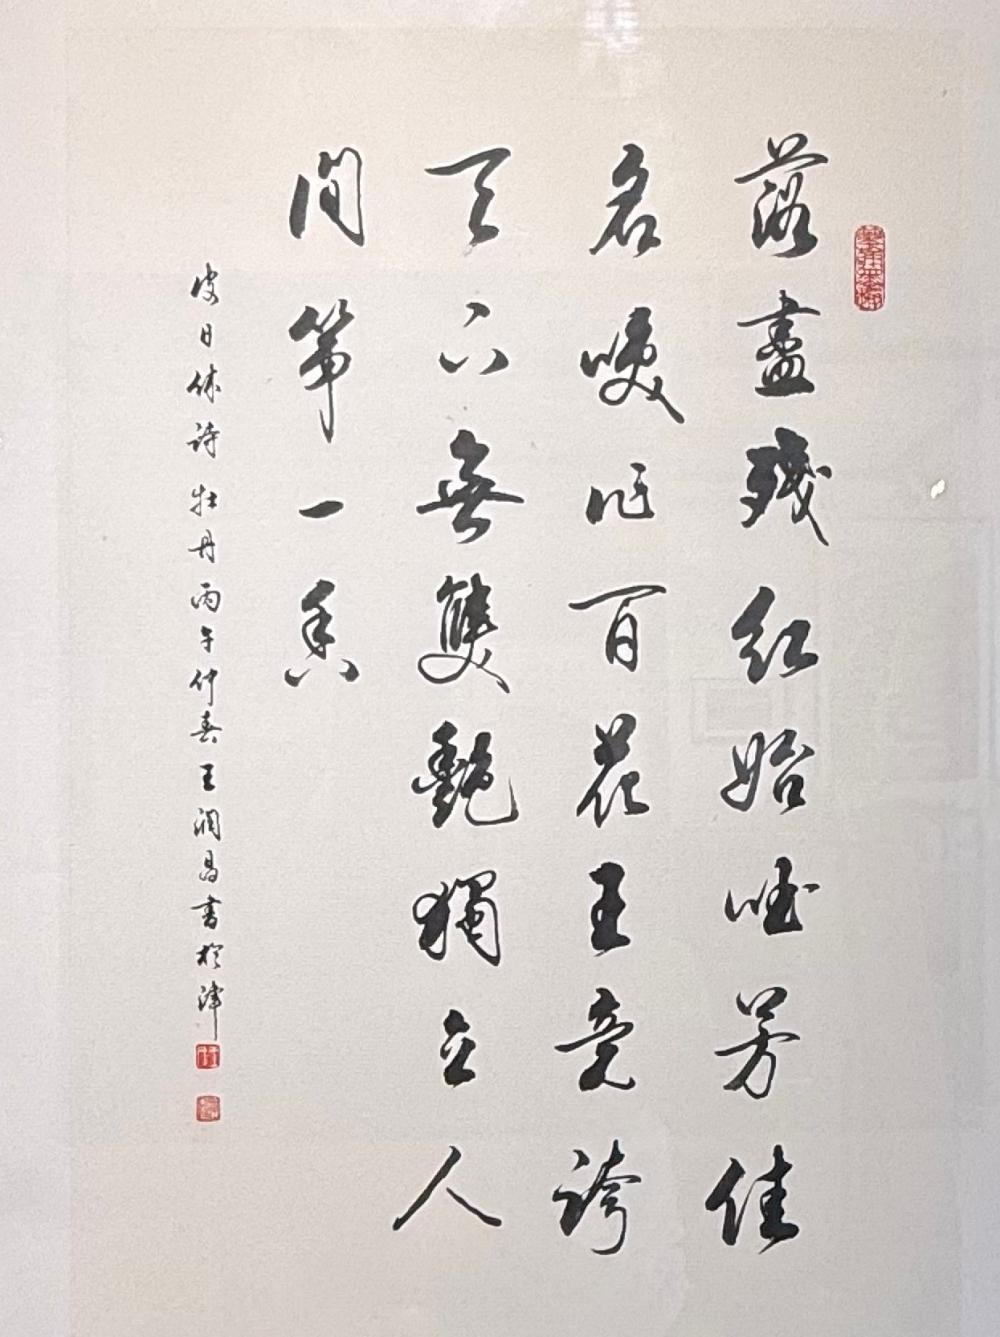 落盡殘紅始吐芳佳
名喚作百花王竞誇
天下無雙艷獨立人
间第一香
皮日休诗牡丹丙午仲春王润昌書於津